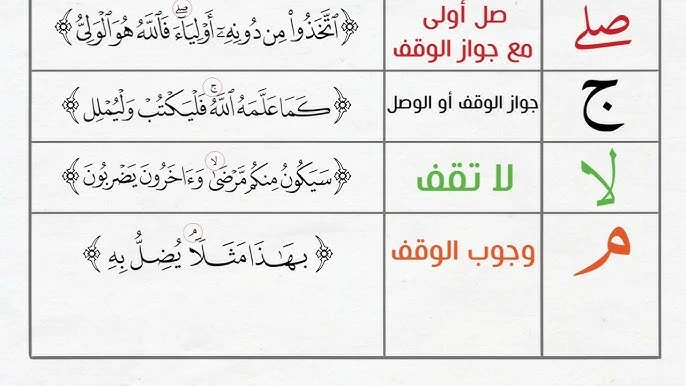 صلے
صل أولى
مع جواز الوقف
﴿ ٱتَّخَذُوا۟ مِن دُونِهِۦٓ أَوْلِيَآءَۖ فَٱللَّهُ هُوَ ٱلْوَلِىُّ ﴾
ج
جواز الوقف أو الوصل
﴿ كَمَا عَلَّمَهُ ٱللَّهُۚ فَلْيَكْتُبْ وَلْيُمْلِلِ ﴾
لا
لا تقف
﴿ سَيَكُونُ مِنكُم مَّرْضَىٰۙ وَءَاخَرُونَ يَضْرِبُونَ ﴾
م
وجوب الوقف
﴿ بِهَٰذَا مَثَلًاۘ يُضِلُّ بِهِ ﴾